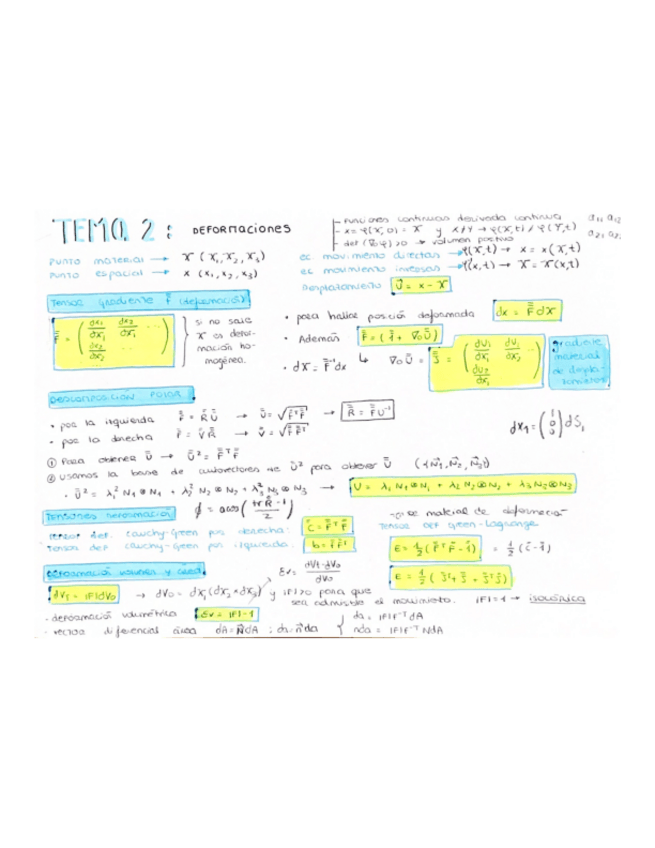 TEMA 2: DEFORMACIONES
Funciones continuas derivada continua a₁₁ a₁₂
x = φ(X,0) = X y X≠Y → φ(X,t) ≠ φ(Y,t) a₂₁ a₂₂
det(∇₀φ)>0 → volumen positivo
punto material → X (X₁, X₂, X₃)
ec movimiento directas → φ(X,t) → x = x(X,t)
punto espacial → x (x₁, x₂, x₃)
ec movimiento inversas → φ(x,t) → X = X(x,t)
Desplazamiento Ū = x - X
Tensor gradiente F (deformación)
F = ( dx₁/dX₁ dx₂/dX₁ ... dx₂/dX₂ ... )
si no sale X es defor-
mación ho-
mogénea.
• para hallar posición deformada dx = F dX
• Además F = (1 + ∇₀Ū)
• dX = F⁻¹dx
∇₀Ū = J = ( dU₁/dX₁ dU₁/dX₂ ... dU₂/dX₁ )
gradiente
material
de despla-
zamientos
DESCOMPOSICIÓN POLAR
• por la izquierda F = R U → U = √FᵀF → R = F U⁻¹
• por la derecha F = V R → V = √F Fᵀ
dX₁ = (1 0 0) dS₁
① Para obtener U → U² = FᵀF
② usamos la base de autovectores de U² para obtener U (N₁, N₂, N₃)
• U² = λ₁² N₁⊗N₁ + λ₂² N₂⊗N₂ + λ₃² N₃⊗N₃ → U = λ₁ N₁⊗N₁ + λ₂ N₂⊗N₂ + λ₃ N₃⊗N₃
Tensores deformación φ = acos( (tr R - 1)/2 )
Tensor def. Cauchy-Green por derecha: C = FᵀF
Tensor def Cauchy-Green por izquierda: b = F Fᵀ
material de deformación
Tensor def Green-Lagrange
E = ½(FᵀF - 1) = ½(C - 1)
E = ½(Jᵀ + J + JᵀJ)
Deformación volumen y área
Ev = (dVt - dV₀)/dV₀
dVt = |F|dV₀ → dV₀ = dX₁(dX₂ × dX₃) y |F|>0 para que
sea admisible el movimiento. |F|=1 → isocórica
• deformación volumétrica Ev = |F|-1
• vector diferencial área dA = N dA ; da = n da
da = |F|F⁻ᵀdA
nda = |F|F⁻ᵀNdA